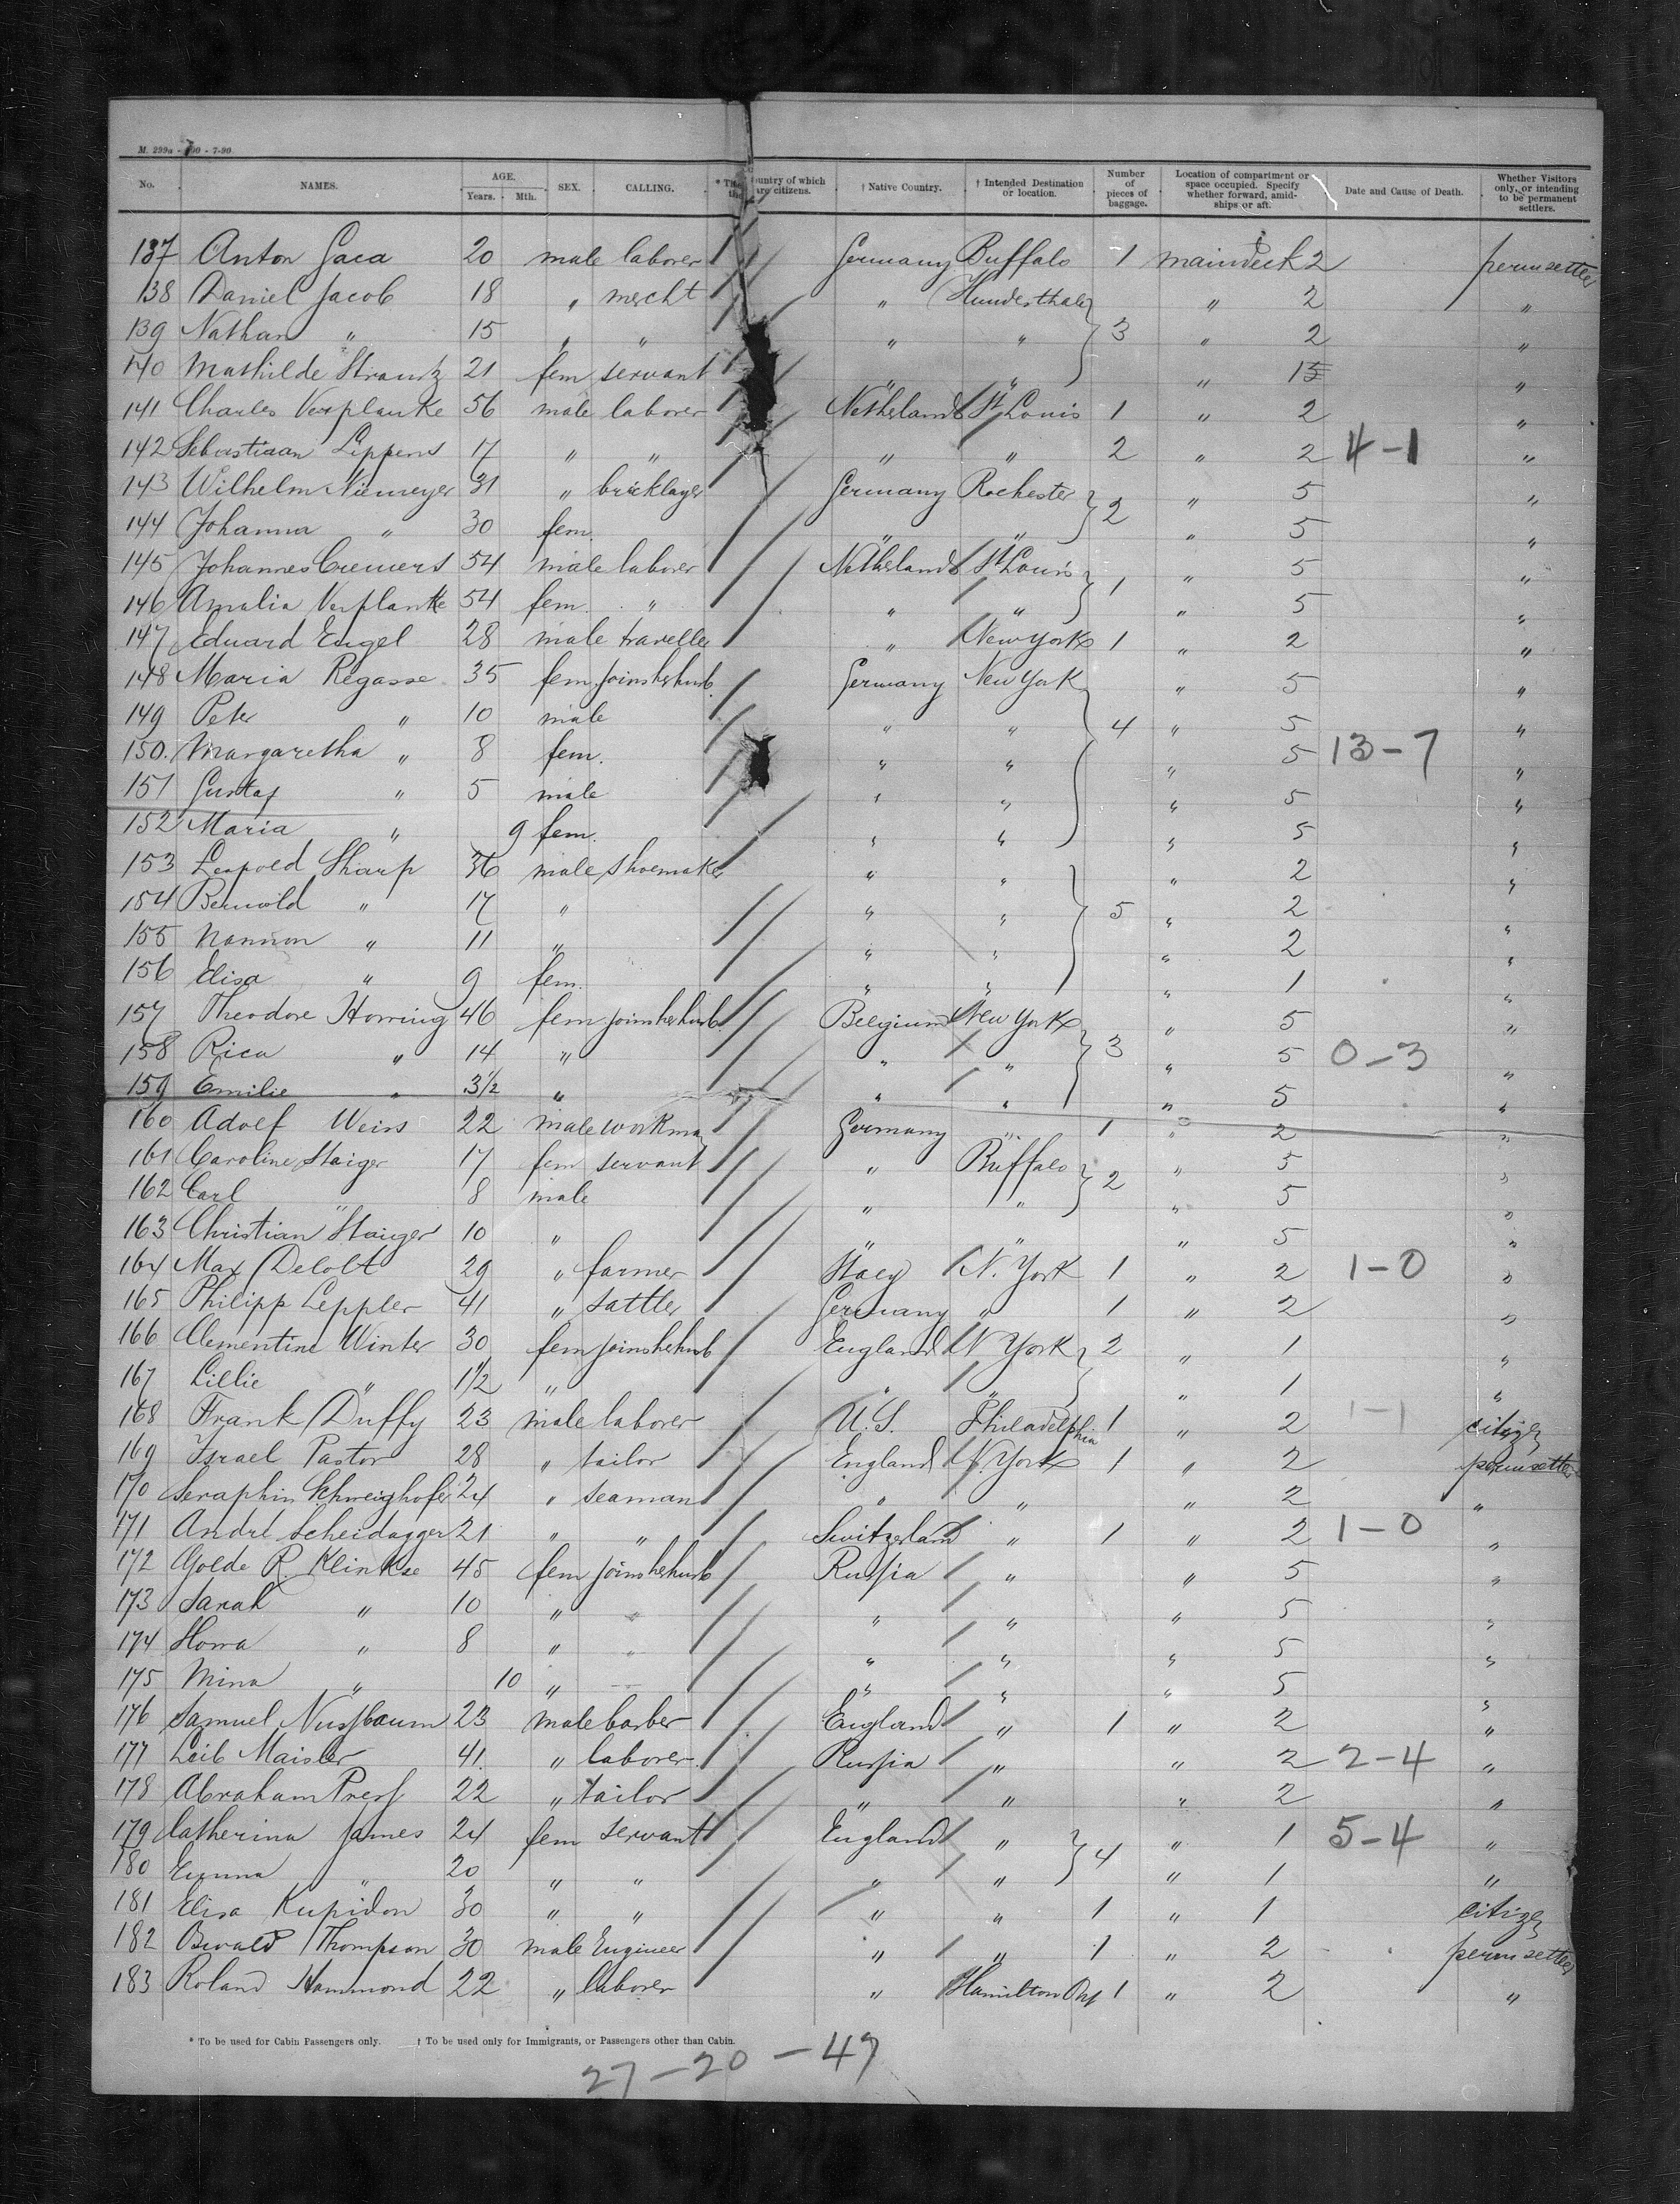 M. 299a - 7-90
No. NAMES. AGE. Years. Mth. SEX. CALLING. Country of which are citizens. † Native Country. † Intended Destination or location. Number of pieces of baggage. Location of compartment or space occupied. Specify whether forward, amidships or aft. Date and Cause of Death. Whether Visitors only, or intending to be permanent settlers.
137 Anton Gaca 20 male laborer Germany Buffalo 1 maindeck 2 permsettler
138 Daniel Jacob 18 " mercht " " 2 "
139 Nathan " 15 " " " " 3 " 2 "
140 Mathilde Strautz 21 fem servant " " " "
141 Charles Verplanke 56 male laborer Netherland St Louis 1 " 2 "
142 Sebastiaan Leppens 17 " " " " 2 " 2 4-1 "
143 Wilhelm Niemeyer 31 " bricklayer Germany Rochester 2 " 5 "
144 Johanna " 30 fem. " " " 5 "
145 Johannes Cremers 54 male laborer Netherland St Louis 1 " 5 "
146 Amalia Verplanke 54 fem. " " " " 5 "
147 Eduard Engel 28 male traveller " New York 1 " 2 "
148 Maria Regasse 35 fem. joinsherhusb. Germany New York " 5 "
149 Peter " 10 male " " 4 " 5 "
150. Margaretha " 8 fem. " " " 5 13-7 "
151 Gustaf " 5 male " " " 5 "
152 Maria " 9 fem. " " " 5 "
153 Leopold Sharp 36 male shoemaker " " " 2 "
154 Bernold " 17 " " " 5 " 2
155 " 11 " " " " 2 "
156 Elisa " 9 fem. " " " 1 "
157 Theodore Horring 46 fem joinsherhusb. Belgium New York " 5 "
158 Rica " 14 " " " 3 " 5 0-3 "
159 Emilie " 3½ " " " " 5 "
160 Adolf Weiss 22 male workman Germany " 1 " 2 "
161 Caroline Staiger 17 fem servant " Buffalo " 5 "
162 Carl " 8 male " " 2 " 5 "
163 Christian Staiger 10 " " " " 5 "
164 Max Delolt 29 " farmer N. York 1 " 2 1-0 "
165 Philipp Leppler 41 " sattler Germany " 1 " 2 "
166 Clementine Winter 30 fem joinsherhusb England N York 2 " 1 "
167 Lillie " 1½ " " " " 1 "
168 Frank Duffy 23 male laborer U.S. Philadelphia 1 " 2 1-1 citizen
169 Israel Pastor 28 " tailor England N. York 1 " 2 permsettler
170 Seraphin Schweighofer 24 " seaman " " " 2 "
171 André Scheidagger 21 " " Switzerland " 1 " 2 1-0 "
172 Golde R. Klinkse 45 fem joinsherhusb Russia " " 5 "
173 Sarah " 10 " " " " 5 "
174 " 8 " " " " 5 "
175 Mina " 10 " " " " 5 "
176 Samuel Nussbaum 23 male barber England " 1 " 2 "
177 Leib Maisler 41. " laborer Russia " " 2 2-4 "
178 Abraham Press 22 " tailor " " " 2 "
179 Catherina James 24 fem servant England " " 1 5-4 "
180 Emma " 20 " " " " 4 " 1 "
181 Elisa Kupidon 30 " " " " 1 " 1 citizen
182 Oswald Thompson 30 male Engineer " " 1 " 2 permsettler
183 Roland Hammond 22 " laborer " Hamilton Ont 1 " 2 "
* To be used for Cabin Passengers only. † To be used only for Immigrants, or Passengers other than Cabin.
27-20-47